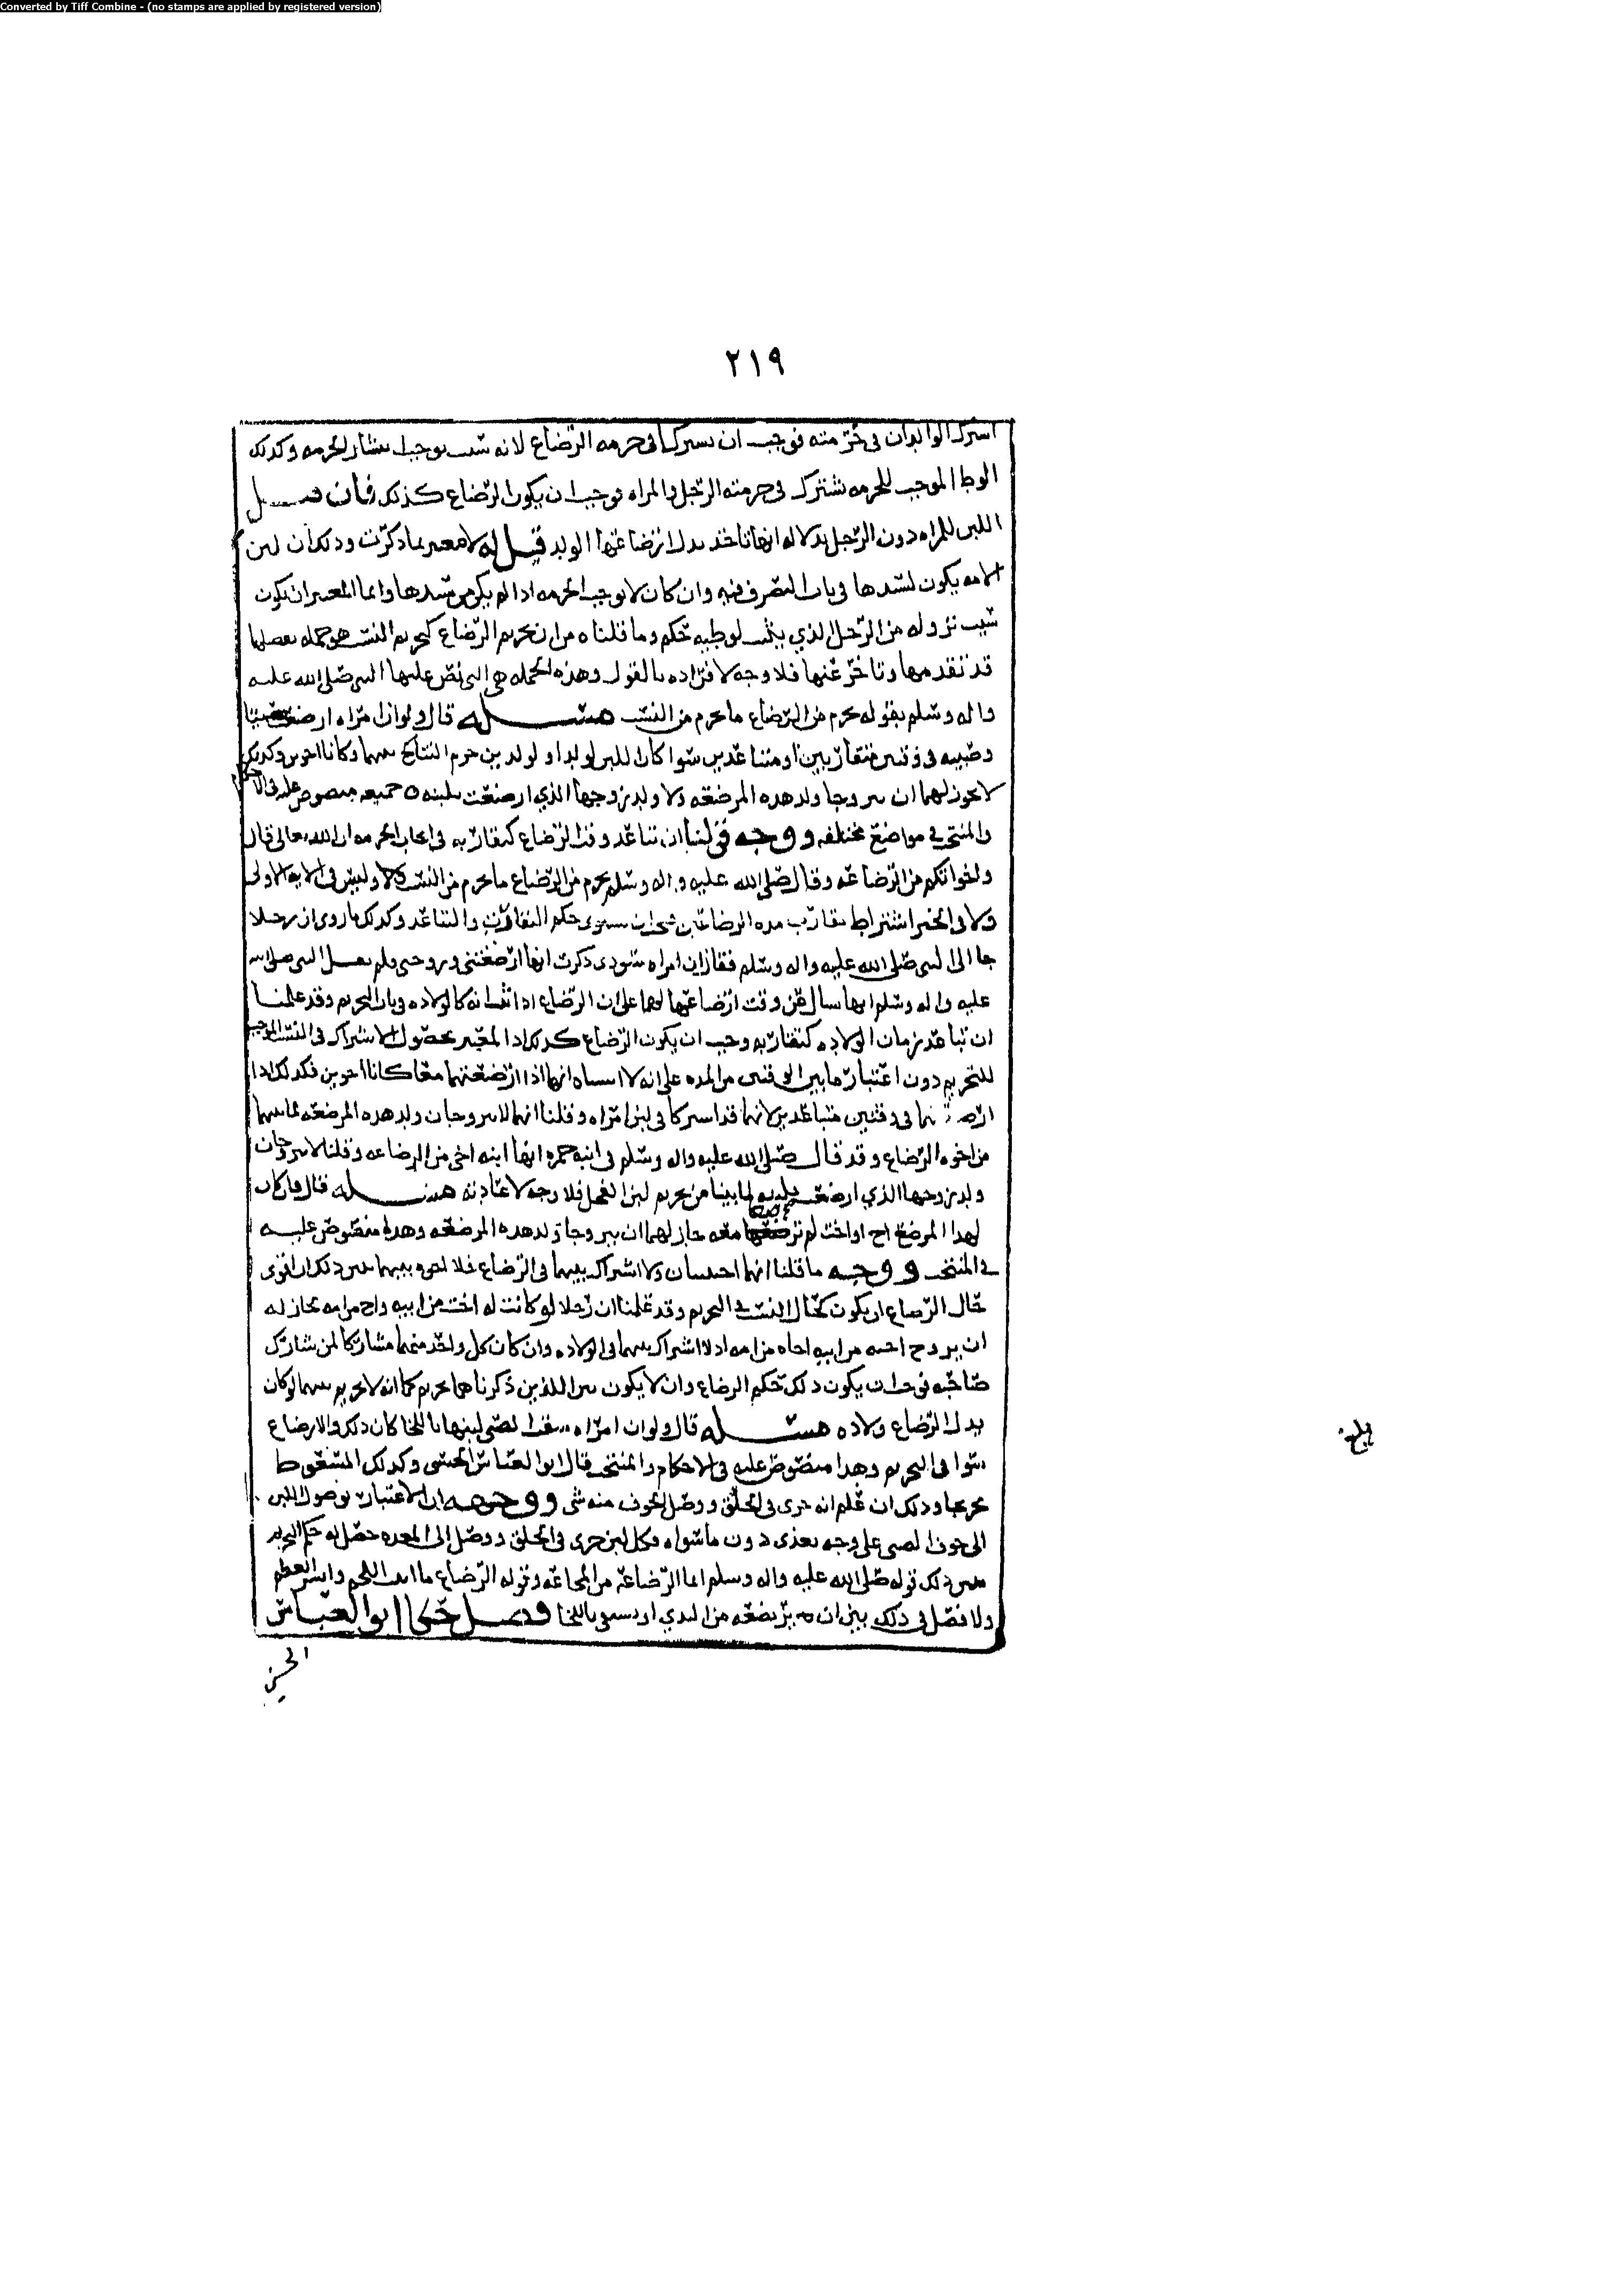 Converted by Tiff Combine - (no stamps are applied by registered version)
٢١٩
اشترك الوالدان في حرمته فوجب ان يشتركا في حرمه الرضاع لانه سبب يوجب انتشار الحرمه وكذلك
الوطا الموجب للحرمه تشترك في حرمته الرجل والمراه فوجب ان يكون الرضاع كذلك فان قيل
اللبن للمراه دون الرجل بدلاله انها تاخذ بدل ارضاعها الولد قيل له لا معتبر بما ذكرت وذلك ان لبن
الامه يكون لسيدها في باب التصرف فيه وان كان لا يوجب الحرمه اذا لم يكن من سيدها وانما المعتبر ان يكون
سبب نزوله من الرجل الذي يثبت لوطيه حكم وما قلناه من ان تحريم الرضاع كتحريم النسب هو جمله تفصيلها
قد تقدم منها وتاخر عنها فلا وجه لافراده بالقول وهذه الجمله هي التي نص عليها النبي صلى الله عليه
واله وسلم بقوله يحرم من الرضاع ما يحرم من النسب مسئله قال ولو ان امراه ارضعت صبيا
وصبيه في وقتين متقاربين او متباعدين سوا كان اللبن لولد او لولدين حرم التناكح بينهما وكانا اخوين وكذلك
لا يجوز لهما ان يتزوجا ولد هذه المرضعه ولا ولد زوجها الذي ارضعت بلبنه جميعه منصوص عليه في الاحكام
والمنتخب في مواضع مختلفه ووجه قولنا ان تباعد وقت الرضاع كتقاربه في ايجاب الحرمه ان الله تعالى قال
واخواتكم من الرضاعه وقال صلى الله عليه واله وسلم يحرم من الرضاع ما يحرم من النسب وليس في الايه
ولا في الخبر اشتراط تقارب مده الرضاعين فيجب ان يستوي حكم التقارب والتباعد وكذلك ما روي ان رجلا
جا الى النبي صلى الله عليه واله وسلم فقال ان امراه سودى ذكرت انها ارضعتني وزوجتي ولم يسل النبي صلى الله
عليه واله وسلم انها سال عن وقت ارضاعها لهما على ان الرضاع اذا ثبت انه كالولاده في باب التحريم وقد علمنا
ان تباعد زمان الولاده كتقاربه وجب ان يكون الرضاع كذلك اذ المعتبر بحصول الاشتراك في النسب الموجب
للتحريم دون اعتبار ما بين الوقتين من المده على انه لا اشتباه انها اذا ارضعتهما معا كانا اخوين فكذلك اذا
ارضعتهما في وقتين متباعدين لانهما قد اشتركا في لبن امراه وقلنا انهما لا يتزوجان ولد هذه المرضعه لما بينهما
من اخوه الرضاع وقد قال صلى الله عليه واله وسلم في ابنه حمزه انها ابنه اخي من الرضاعه وقلنا لا يتزوجان
ولد زوجها الذي ارضعت بلبنه لما بينا من تحريم لبن الفحل فلا وجه لاعادته مسئله قال فان كان
لهذا المرضع اخ او اخت لم ترضعهما معه جاز لهما ان يتزوجا ولد هذه المرضعه وهذا منصوص عليه
في المنتخب ووجه ما قلنا انهما اجنبيان ولا اشتراك بينهما في الرضاع فلا اخوه بينهما يبين ذلك ان اقوى
حال الرضاع ان يكون كحال النسب في التحريم وقد علمنا ان رجلا لو كانت له اخت من ابيه واخ من امه لجاز له
ان يزوج اخته من ابيه اخاه من امه اذ لا اشتراك بينهما في الولاده وان كان كل واحد منهما مشاركا لمن شارك
صاحبه فيجب ان يكون ذلك حكم الرضاع وان لا يكون بين اللذين ذكرناهما تحريم كما انه لا تحريم بينهما لو كان
بدل الرضاع ولاده مسئله قال ولو ان امراه سقت لصبي لبنها باللخا كان ذلك والارضاع
سوا في التحريم وهذا منصوص عليه في الاحكام والمنتخب قال ابو العباس الحسني وكذلك المسعوط
وذلك ان علم انه جرى في الحلق ووصل الجوف منه شي ووجهه ان الاعتبار بوصول اللبن
الى جوف الصبي على وجه يغذي دون ما سواه وكل لبن جرى في الحلق ووصل الى المعده حصل له حكم التحريم
يبين ذلك قوله صلى الله عليه واله وسلم انما الرضاعه من المجاعه وقوله الرضاع ما انبت اللحم وانشر العظم
ولا فصل في ذلك بين ان يرتضعه من الثدي او يسقى باللخا فصل حكى ابو العباس
الحسني